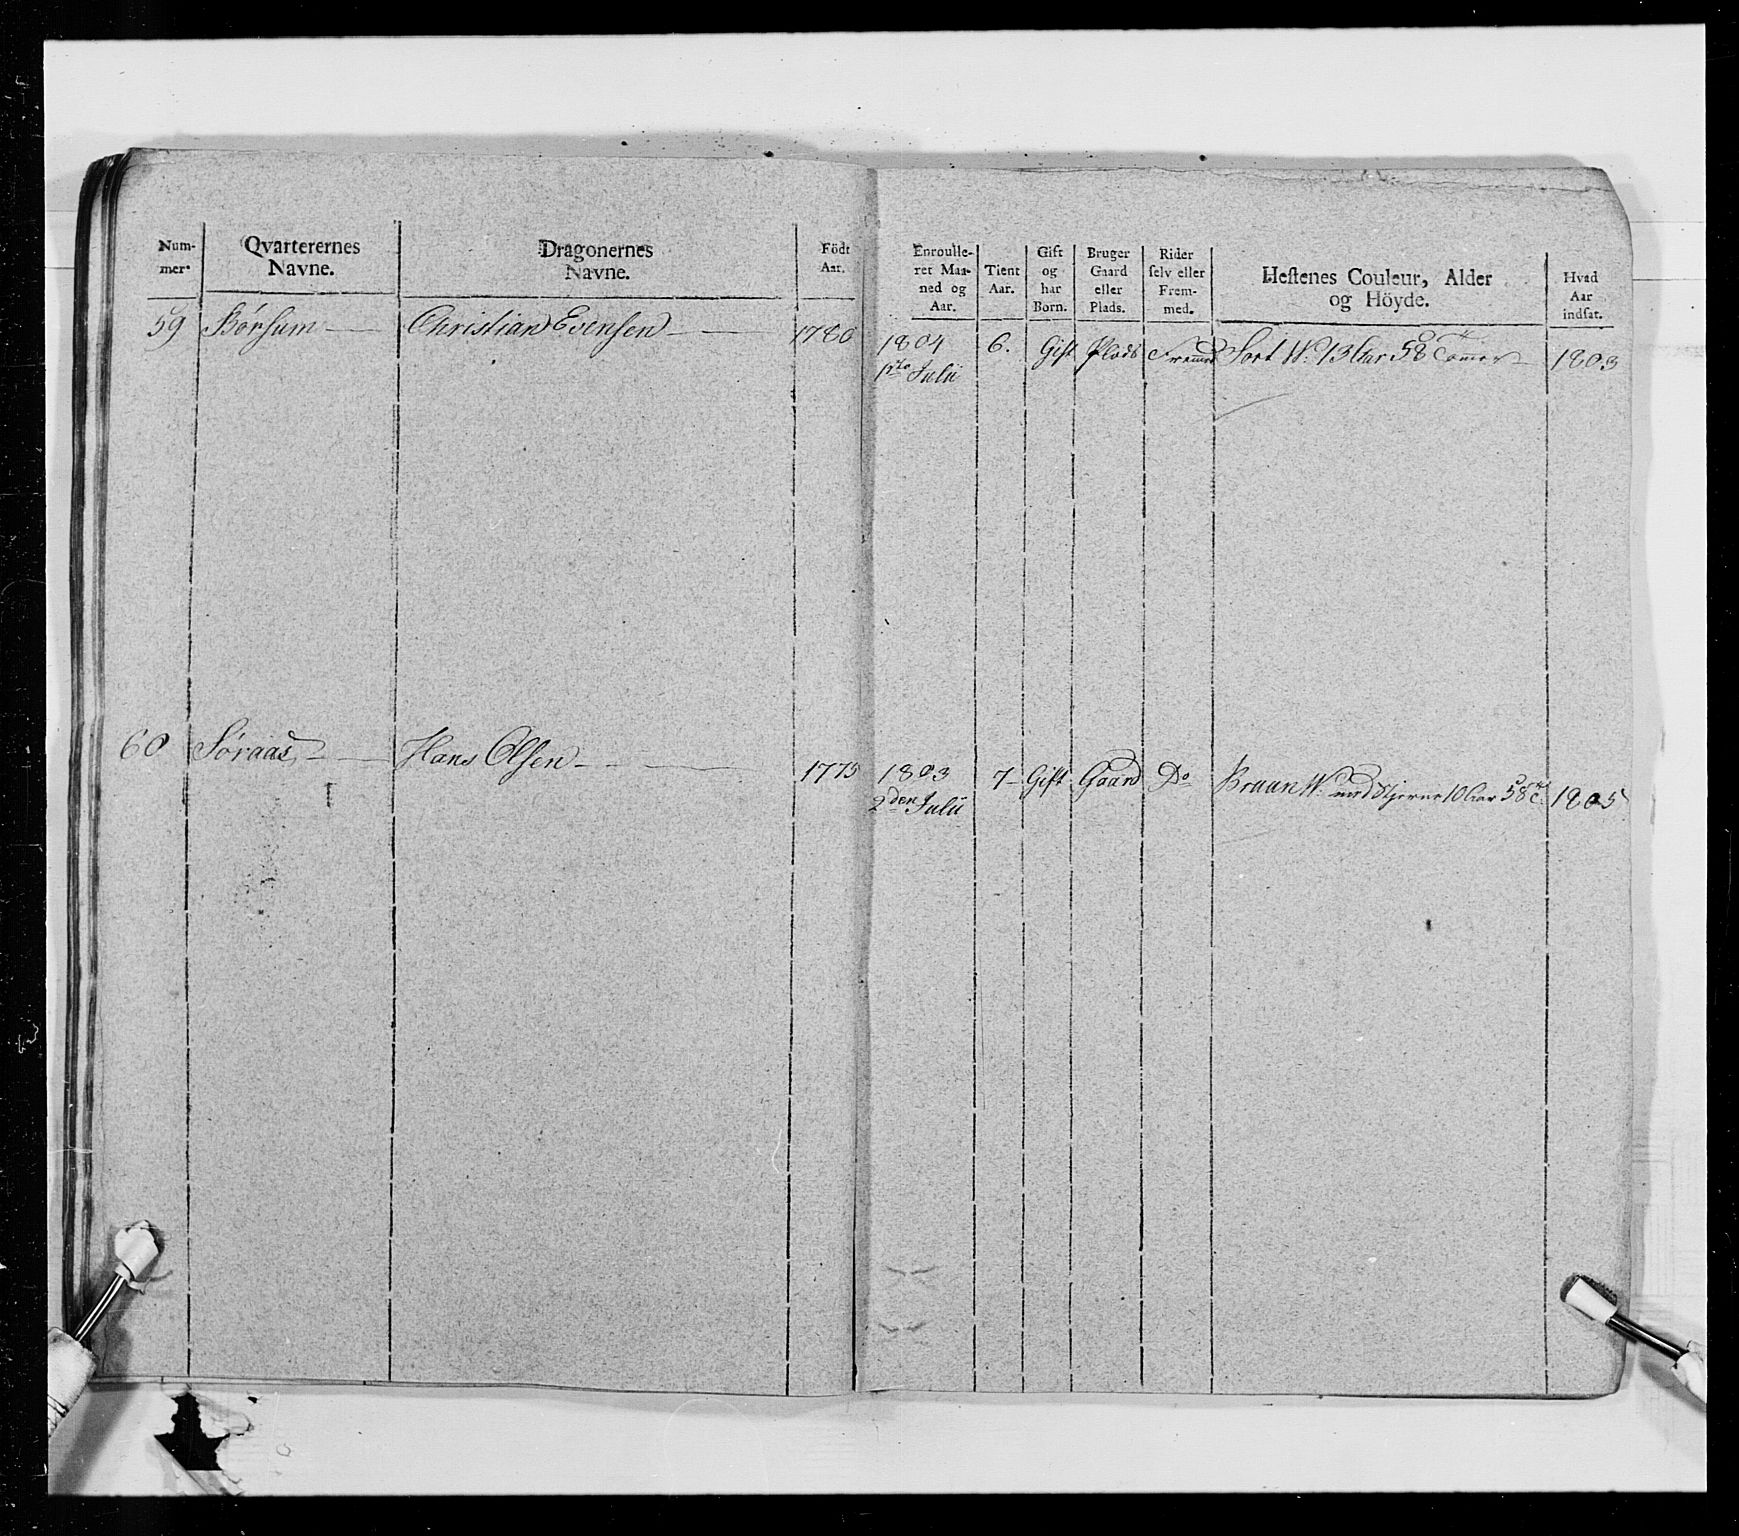 Num-
mer.
Qvarterernes
Navne.
Dragonernes
Navne.
Födt
Aar.
Enroulle-
ret Maa-
ned og
Aar.
Tient
Aar.
Gift
og
har
Born.
Bruger
Gaard
eller
Plads.
Rider
selv eller
Frem-
med.
Hestenes Couleur, Alder
og Höyde.
Hvad
Aar
indsat.
59 Børsum Christian Evensen 1780 1804 6. Gift Plads Fremed Sort W. 13 Aar 58 Tomer 1803
1ste Julii
60 Søraas Hans Olsen 1775 1803 7 Gift Gaard Do Bruun W. med Stjerne 10 Aar 58 T. 1805
2den Julii